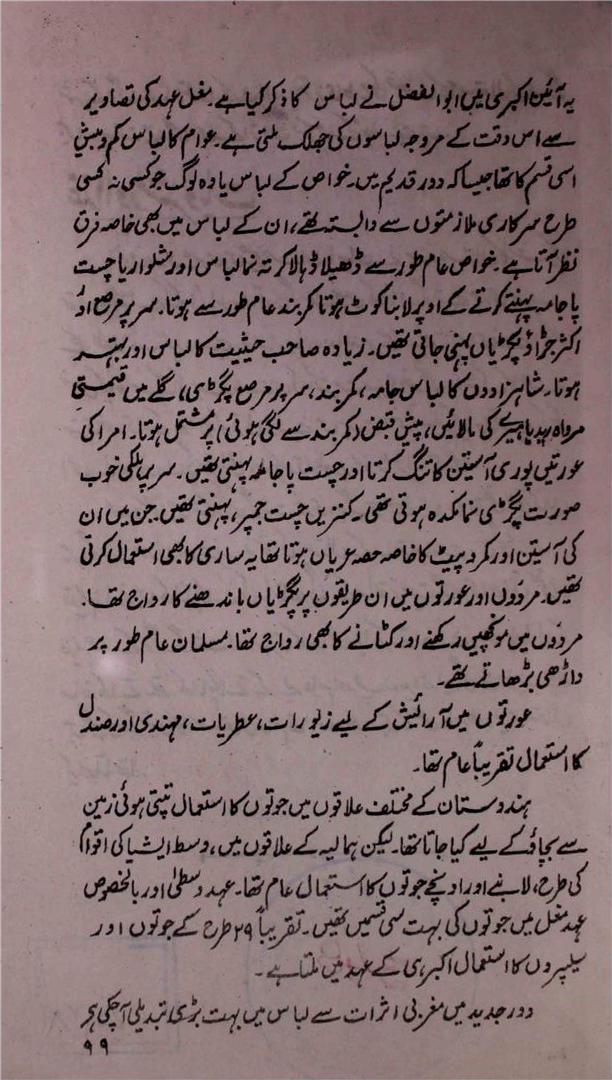 یہ آئین اکبری میں ابوالفضل نے لباس کا ذکر کیا ہے۔ مغل عہد کی تصاویر
سے اس وقت کے مروجہ لباسوں کی جھلک ملتی ہے۔ عوام کا لباس کم و بیش
اسی قسم کا تھا جیسا کہ دور قدیم میں۔ خواص کے لباس یا وہ لوگ جو کسی نہ کسی
طرح سرکاری ملازمتوں سے وابستہ تھے، ان کے لباس میں بھی خاصہ فرق
نظر آتا ہے۔ خواص عام طور سے ڈھیلا ڈھالا کرتہ نما لباس اور شلوار یا چست
پاجامہ پہنتے کرتے کے اوپر لابنا کوٹ ہوتا کمر بند عام طور سے ہوتا۔ سر پر مرصع اور
اکثر جڑاؤ پگڑیاں پہنی جاتی تھیں۔ زیادہ صاحب حیثیت کا لباس اور بہتر
ہوتا۔ شاہزادوں کا لباس جامہ، کمر بند، سر پر مرصع پگڑی، گلے میں قیمتی
مرواہید یا ہیرے کی مالائیں، پیش قبض (کمر بند سے لگی ہوئی) پر مشتمل ہوتا۔ امرا کی
عورتیں پوری آستین کا تنگ کرتا اور چست پاجامہ پہنتی تھیں۔ سر پر ہلکی خوب
صورت پگڑی نما ہوتی تھی۔ کنزیں چست جمپر، پہنتی تھیں جن میں ان
کی آستین اور کمر و پیٹ کا خاصہ حصہ عریاں ہوتا تھا یہ ساری کا بھی استعمال کرتی
تھیں۔ مردوں اور عورتوں میں ان طریقوں پر پگڑیاں باندھنے کا رواج تھا۔
مردوں میں مونچھیں رکھنے اور کٹانے کا بھی رواج تھا۔ مسلمان عام طور پر
داڑھی بڑھاتے تھے۔
عورتوں میں آرائیش کے لیے زیورات، عطریات، مہندی اور صندل
کا استعمال تقریباً عام تھا۔
ہندوستان کے مختلف علاقوں میں جوتوں کا استعمال تپتی ہوئی زمین
سے بچاؤ کے لیے کیا جاتا تھا۔ لیکن ہمالیہ کے علاقوں میں، وسط ایشیا کی اقوام
کی طرح، لابنے اور اونچے جوتوں کا استعمال عام تھا۔ عہد وسطیٰ اور بالخصوص
عہد مغل میں جوتوں کی بہت سی قسمیں تھیں۔ تقریباً ۲۹ طرح کے جوتوں اور
سیلپروں کا استعمال اکبر ہی کے عہد میں ملتا ہے۔
دور جدید میں مغربی اثرات سے لباس میں بہت بڑی تبدیلی آچکی ہے
۹۹